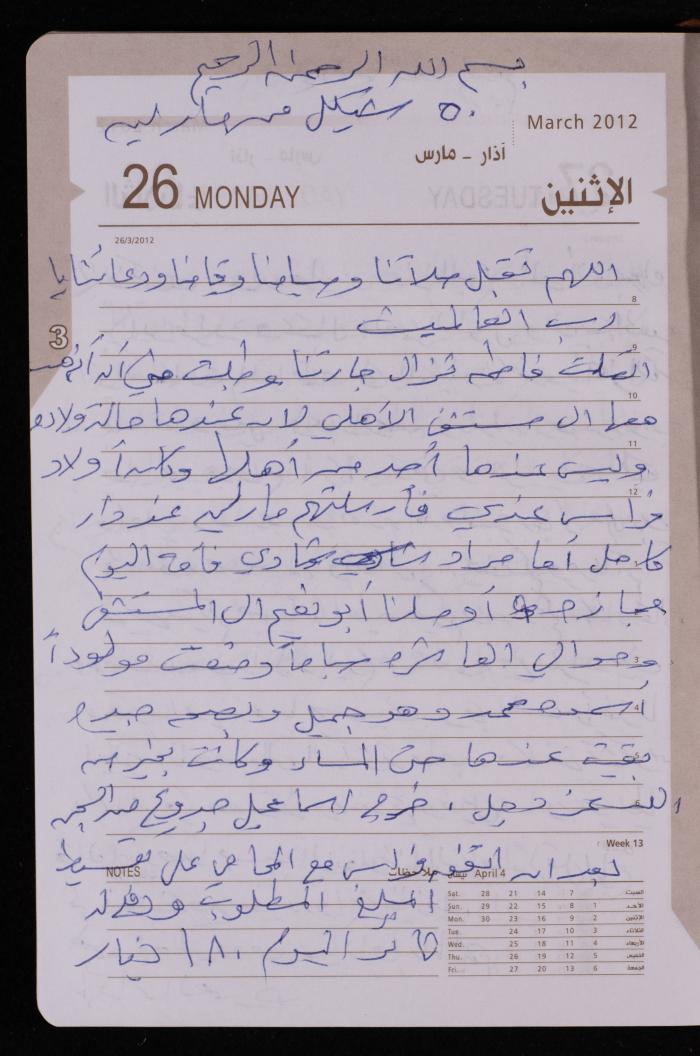 بسم الله الرحمن الرحيم
٥٠ شيكل من مارلين
March 2012
آذار - مارس
26 MONDAY
الإثنين
26/3/2012
اللهم تقبل صلاتنا وصيامنا وقيامنا ودعائنا يا
8
رب العالمين
3
9
اتصلت فاطمة نزال جارتنا وطلبت مني أن أذهب
10
معها الى مستشفى الأهلي لأن عندها حالة ولادة
11
وليس عندها أحد من أهلها وكان أولاد
12
فراس عندي فأرسلتهم مارلين عند دار
كامل أما مراد شادي فأمه اليوم
مجازة أوصلنا أبو نعيم الى المستشفى
3
وحوالي العاشرة صباحاً وضعت مولوداً
4
أسموه محمد وهو جميل وبصحة جيدة
5
بقيت عندها حتى المساء وكانت بخير من
6
الله عز وجل . خرج اسماعيل من السجن
Week 13
بعد ان اتفق فراس مع المحامي على تقسيط
NOTES ملاحظات
المبلغ المطلوب ودفع له
اليوم ١٨٠ دينار
April 4 نيسان
Sat. 28 21 14 7 السبت
Sun. 29 22 15 8 1 الأحد
Mon. 30 23 16 9 2 الإثنين
Tue. 24 17 10 3 الثلاثاء
Wed. 25 18 11 4 الأربعاء
Thu. 26 19 12 5 الخميس
Fri. 27 20 13 6 الجمعة